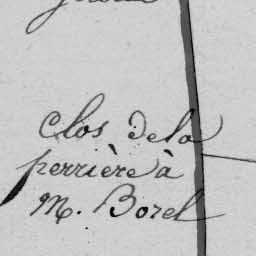 Clos de la
perrière à
M. Borel